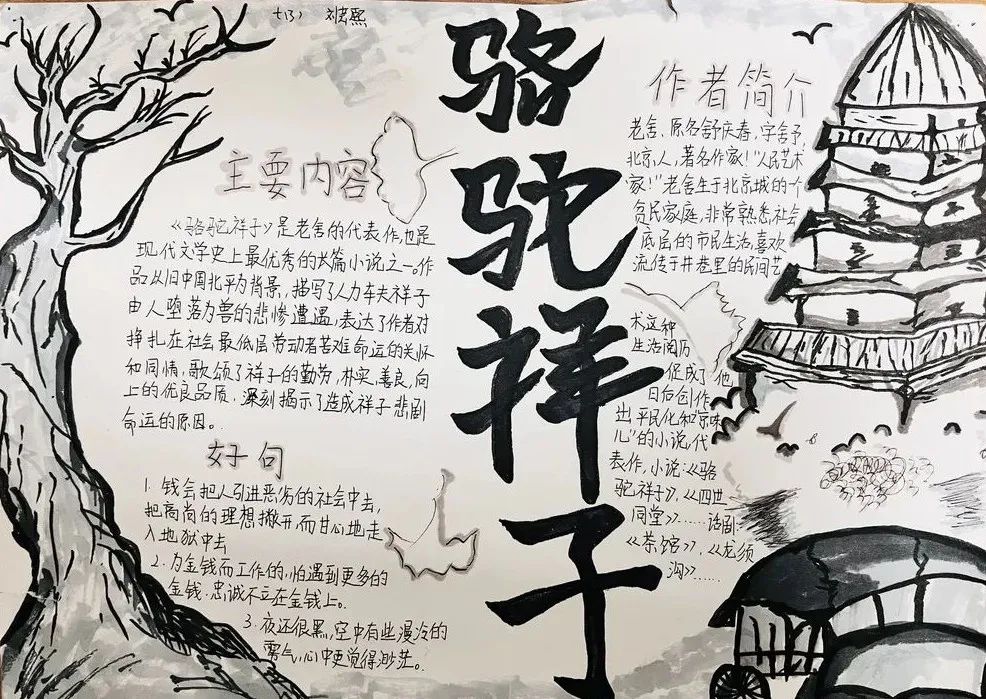 七(3) 刘宏熙
骆驼祥子
主要内容
《骆驼祥子》是老舍的代表作,也是
现代文学史上最优秀的长篇小说之一。作
品从旧中国北平为背景,描写了人力车夫祥子
由人堕落为兽的悲惨遭遇,表达了作者对
挣扎在社会最低层劳动者苦难命运的关怀
和同情,歌颂了祥子的勤劳,朴实,善良,向
上的优良品质,深刻揭示了造成祥子悲剧
命运的原因。
好句
1. 钱会把人引进恶劣的社会中去,
把高尚的理想撇开,而甘心地走
入地狱中去
2. 为金钱而工作的,怕遇到更多的
金钱.忠诚不立在金钱上。
3. 夜还很黑,空中有些湿冷的
雾气,心中更觉得渺茫。
作者简介
老舍、原名舒庆春,字舍予,
北京人,著名作家!“人民艺术
家!”老舍生于北京城的一个
贫民家庭,非常熟悉社会
底层的市民生活,喜欢
流传于井巷里的民间艺
术这种
生活阅历
促成了他
日后创作
出平民化和“京味
儿”的小说,代
表作,小说:《骆
驼祥子》,《四世
同堂》……话剧:
《茶馆》,《龙须
沟》……